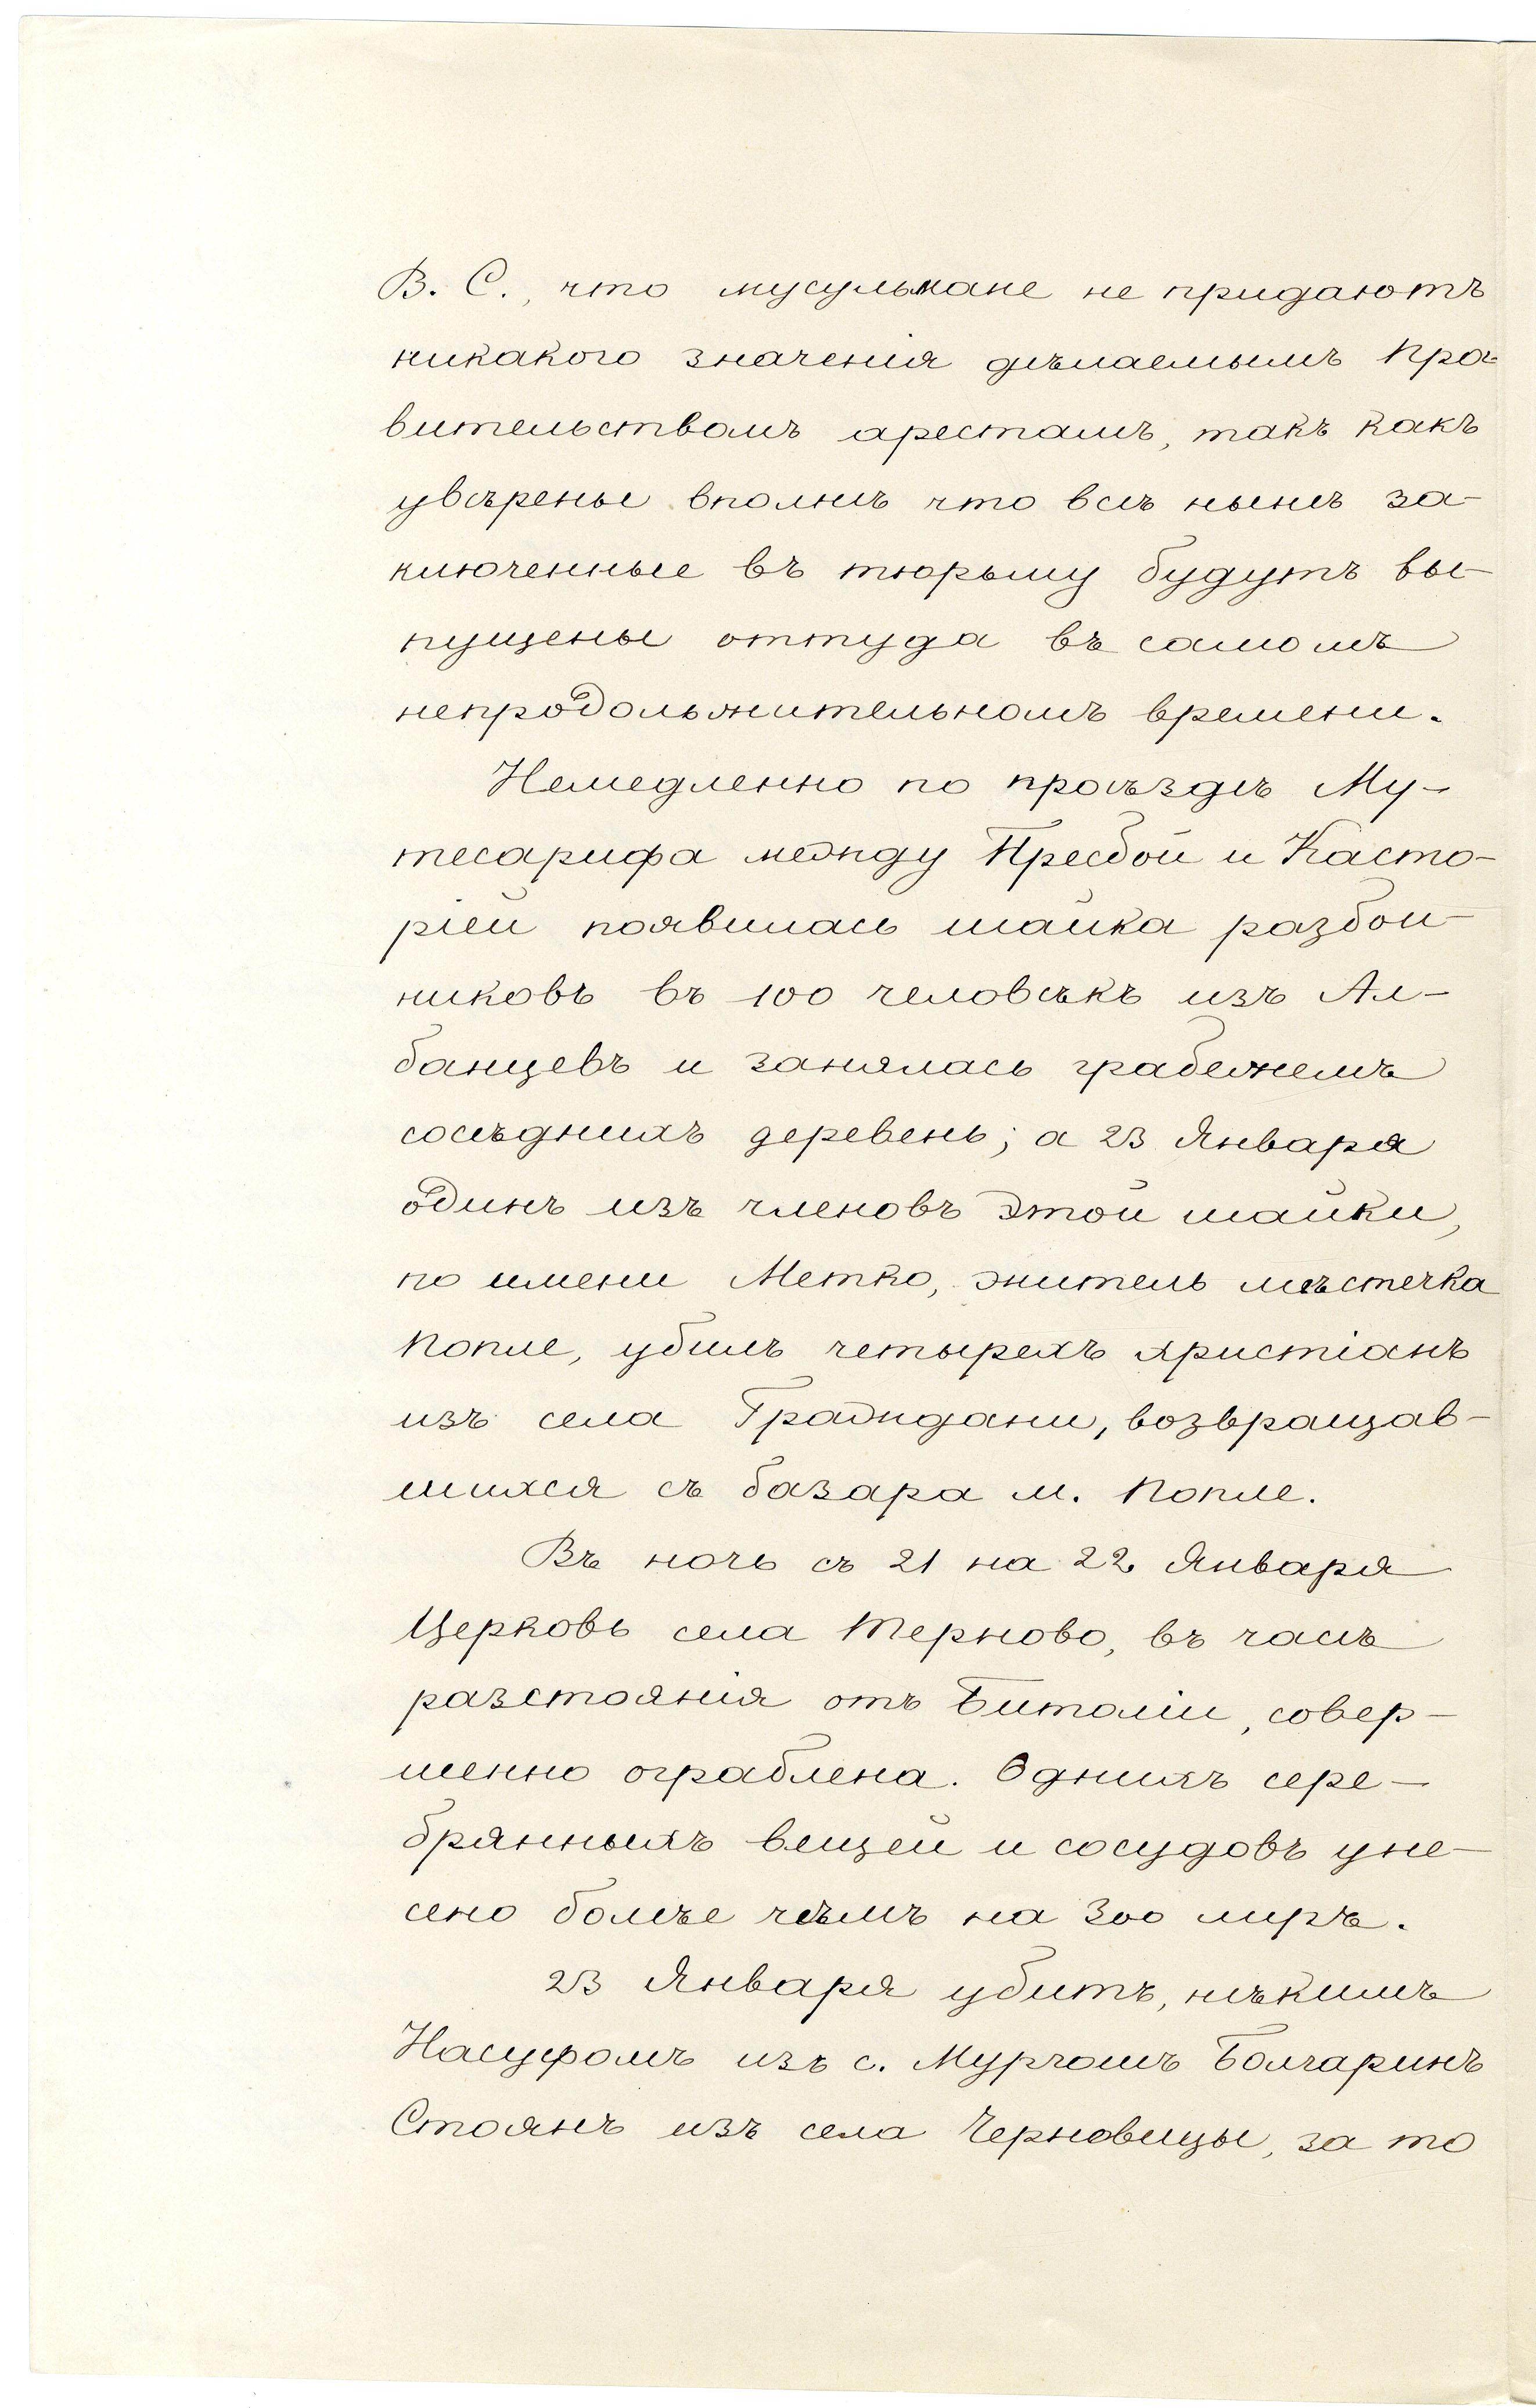 В. С., что мусульмане не придаютъ
никакого значенія дѣлаемымъ Пра-
вительствомъ арестамъ, такъ какъ
увѣрены вполнѣ что всѣ нынѣ за-
ключенные въ тюрьму будутъ вы-
пущены оттуда въ самомъ
непродольжительномъ времени.
Немедленно по проѣздѣ Му-
тесарифа между Пресбой и Касто-
ріей появилась шайка разбой-
никовъ въ 100 человѣкъ изъ Ал-
банцевъ и занялась грабежемъ
сосѣднихъ деревень; а 23 Января
одинъ изъ членовъ этой шайки,
по имени Метко, житель мѣстечка
Попле, убилъ четырехъ христіанъ
изъ села Граждани, возвращав-
шихся съ базара м. Попле.
Въ ночь съ 21 на 22 Января
Церковь села Терново, въ часѣ
разстоянія отъ Битоліи, совер-
шенно ограблена. Однихъ сере-
брянныхъ вещей и сосудовъ уне-
сено болѣе чѣмъ на 300 лиръ.
23 Января убитъ, нѣкимъ
Насуфомъ изъ с. Мургошъ Болгаринъ
Стоянъ изъ села Черновицы, за то